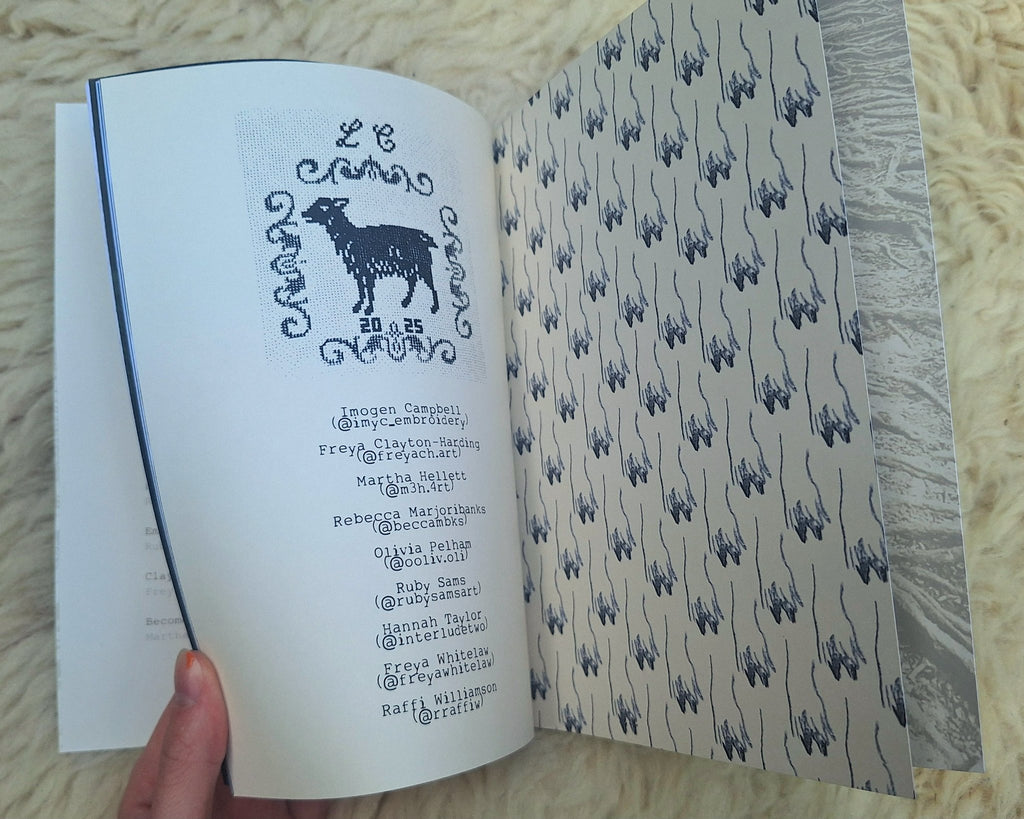 L C
20 25
Imogen Campbell
(@imyc_embroidery)
Freya Clayton-Harding
(@freyach.art)
Martha Hellett
(@m3h.4rt)
Rebecca Marjoribanks
(@beccambks)
Olivia Pelham
(@ooliv.oli)
Ruby Sams
(@rubysamsart)
Hannah Taylor
(@interludetwo)
Freya Whitelaw
(@freyawhitelaw)
Raffi Williamson
(@rraffiw)
Becom
Martha